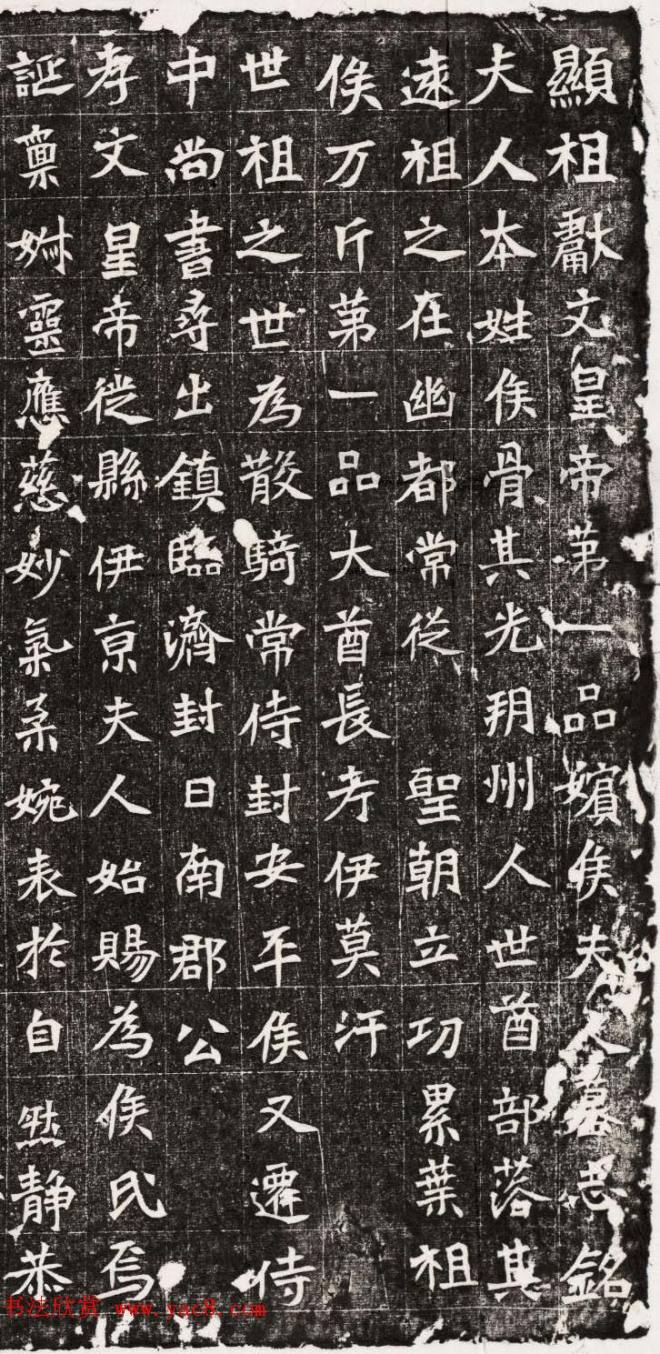 顯祖獻文皇帝苐一品嬪侯夫人墓志銘
夫人本姓侯骨其先玥州人世酋部落其
遠祖之在幽都常從 聖朝立功累葉祖
侯万斤苐一品大酋長考伊莫汗
世祖之世為散騎常侍封安平侯又遷侍
中尚書尋出鎮臨濟封日南郡公
孝文皇帝從縣伊京夫人始賜為侯氏焉
誕稟姊靈應慈妙氣柔婉表於自然静恭
书法欣赏 www.yac8.com